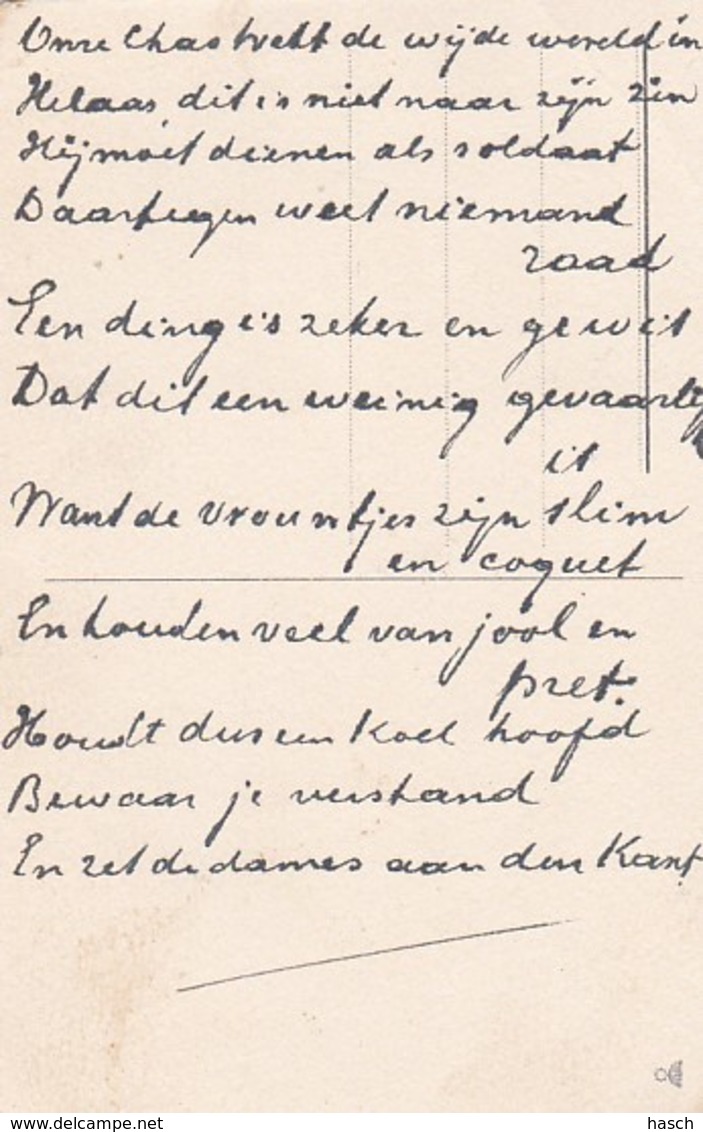 Onze Chas trekt de wijde wereld in
Helaas, dit is niet naar zijn zin
Hij moet dienen als soldaat
Daartegen weet niemand
raad
Een ding is zeker en gewis
Dat dit een weinig gevaarlij
is
Want de vrouwtjes zijn slim
en coquet
En houden veel van jool en
pret.
Houdt dus een koel hoofd
Bewaar je verstand
En zet de dames aan den Kant
delcampe.net
hasch